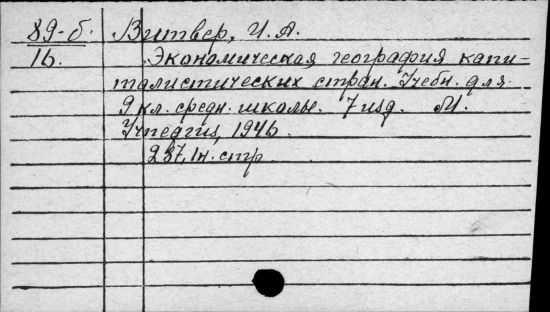 89-б. Витвер, И. А.
16. Экономическая география капи-
талистических стран. Учебн. для
9 кл. средн. школы. 7 изд. М.
Учпедгиз, 1946.
287, 1н. стр.